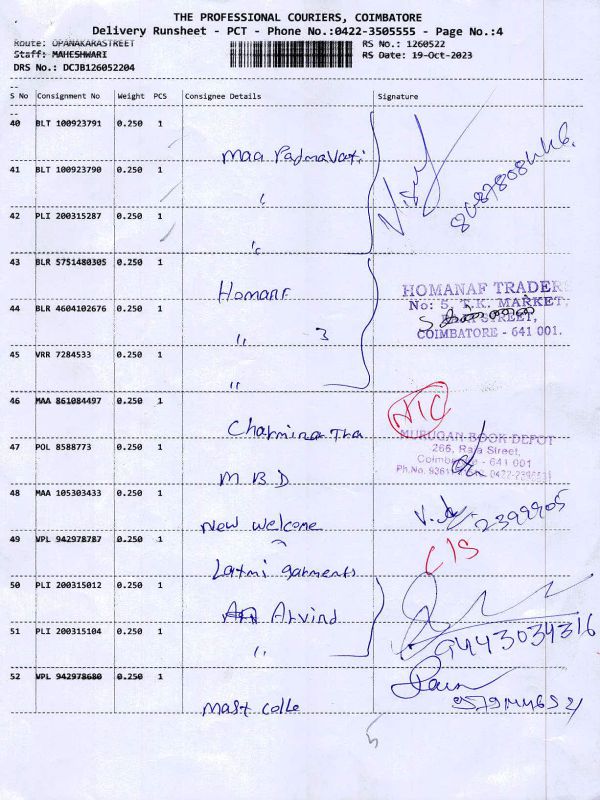 THE PROFESSIONAL COURIERS, COIMBATORE
Delivery Runsheet - PCT - Phone No.:0422-3505555 - Page No.:4
Route: OPANAKARASTREET
RS No.: 1260522
Staff: MAHESHWARI
RS Date: 19-Oct-2023
DRS No.: DCJB126052204
S No Consignment No Weight PCS Consignee Details Signature
40 BLT 100923791 0.250 1
Maa Padmavati
41 BLT 100923790 0.250 1
"
8487808446.
42 PLI 200315287 0.250 1
"
43 BLR 5751480305 0.250 1
Homanf
HOMANAF TRADERS
No: 5, T.K. MARKET,
44 BLR 4604102676 0.250 1
STREET,
" 3
COIMBATORE - 641 001.
45 VRR 7284533 0.250 1
"
46 MAA 861084497 0.250 1
NIC
Charminar
MURUGAN BOOK DEPOT
47 POL 8588773 0.250 1
266, Raja Street,
Coimbatore - 641 001
Ph.No. 0422-
M B D
48 MAA 105303433 0.250 1
New welcome
2399905
49 VPL 942978787 0.250 1
C/S
Laxmi garments
50 PLI 200315012 0.250 1
Arvind
51 PLI 200315104 0.250 1
"
9443034316
52 VPL 942978680 0.250 1
Mast colle